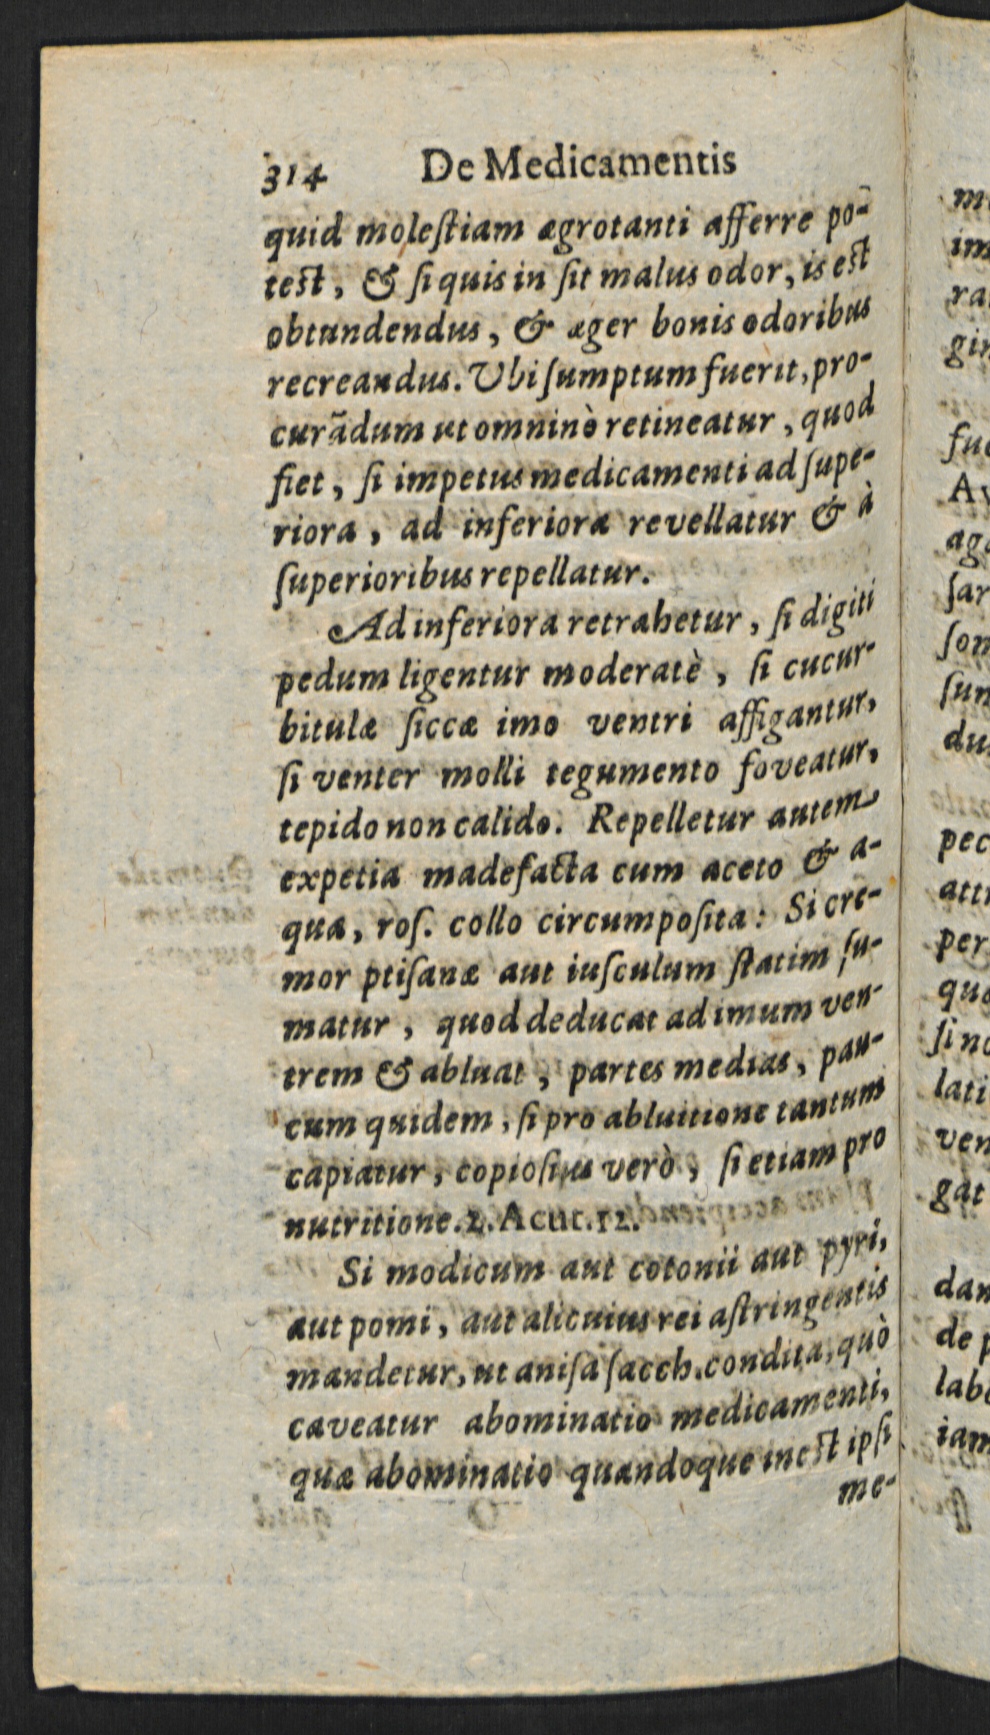 314 De Medicamentis
quid molestiam ægrotanti afferre po-
test, & si quis in sit malus odor, is est
obtundendus, & æger bonis odoribus
recreandus. Ubi sumptum fuerit, pro-
curãdum ut omninò retineatur, quod
fiet, si impetus medicamenti ad supe-
riora, ad inferiora revellatur & à
superioribus repellatur.
Ad inferiora retrahetur, si digiti
pedum ligentur moderatè, si cucur-
bitulæ siccæ imo ventri affigantur,
si venter molli tegumento foveatur,
tepido non calido. Repelletur autem
expetia madefacta cum aceto & a-
qua, ros. collo circumposita: Si cre-
mor ptisanæ aut iusculum statim su-
matur, quod deducat ad imum ven-
trem & abluat, partes medias, pau-
cum quidem, si pro abluitione tantum
capiatur, copiosius verò, si etiam pro
nutritione. 2. Acut. 12.
Si modicum aut cotonii aut pyri,
aut pomi, aut alicuius rei astringentis
mandetur, ut anisa sacch. condita, quò
caveatur abominatio medicamenti,
quæ abominatio quandoque inest ipsi
me-